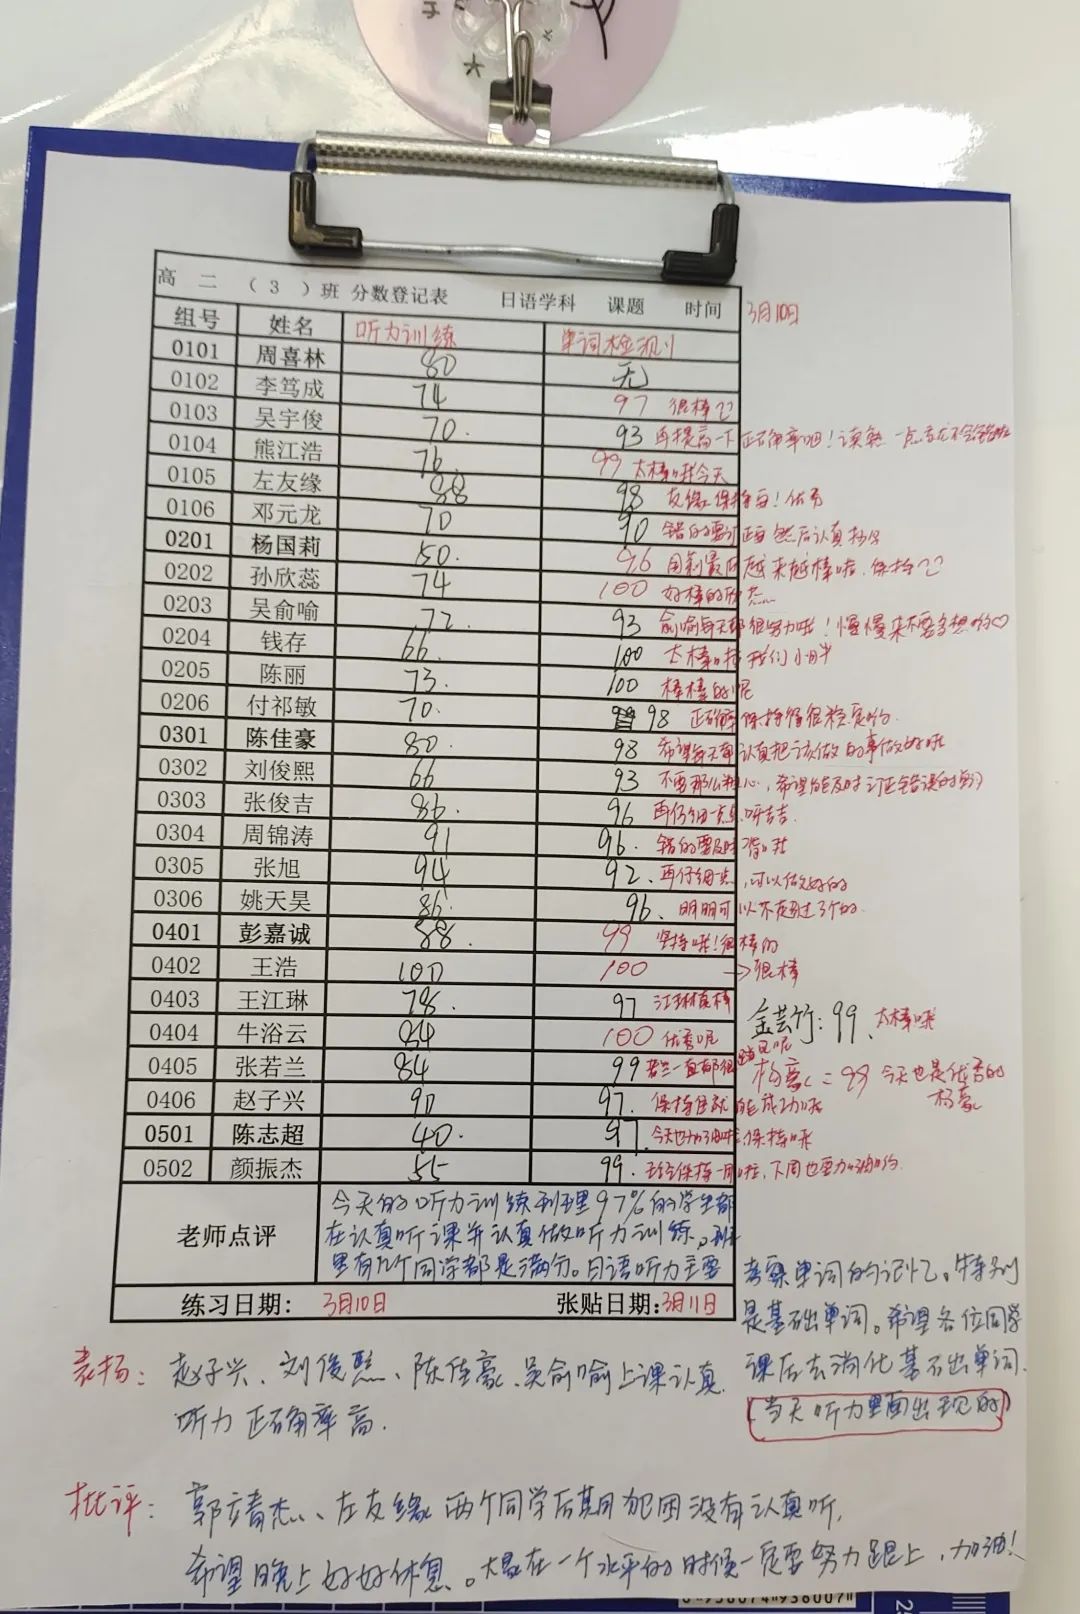 高 二 ( 3 ) 班 分数登记表 日语学科 课题 时间 3月10日
组号 姓名 听力训练 单词检测
0101 周喜林 80 无
0102 李笃成 74 97 很棒
0103 吴宇俊 70. 93 再提高一下正确率吧!读熟一点
0104 熊江浩 76 99 太棒啦今天
0105 左友缘 88 98 友缘保持每!优秀
0106 邓元龙 70 90 错的要订正 然后认真
0201 杨国莉 50. 96 国莉最后越来越棒啦.保持
0202 孙欣蕊 74 100 好棒的欣蕊
0203 吴俞喻 72. 93 俞喻每天都很努力哦!慢慢来不要多想哟♡
0204 钱存 66. 100 太棒啦我们
0205 陈丽 73. 100 棒棒的呢
0206 付祁敏 70. 98 正确率保持得很稳定哟.
0301 陈佳豪 80. 98 希望每天都认真把该做的事做好哦
0302 刘俊熙 66 93 不要那么粗心,希望能及时订正错误的
0303 张俊吉 86. 96 再仔细一点呀吉吉.
0304 周锦涛 91 96. 错的要及时
0305 张旭 94 92. 再仔细点,可以做好的
0306 姚天昊 86. 96. 明明可以不超过3个的.
0401 彭嘉诚 88. 99 坚持哦!很棒的
0402 王浩 100 100 →很棒
0403 王江琳 78. 97 江琳真棒
金芸竹: 99. 太棒啦
0404 牛浴云 84 100 优秀呢
0405 张若兰 84 99 若兰一直都很
杨豪 = 99 今天也是优秀的杨豪
0406 赵子兴 90 97. 保持住就能成功哦
0501 陈志超 40. 97. 今天也加油啦,保持哦
0502 颜振杰 55 99. 保持一周啦,下周也要加油哟.
老师点评 今天的听力训练班里97%的学生都
在认真听课并认真做听力训练,班
里有几个同学都是满分。日语听力主要
考察单词的记忆。特别
是基础单词。希望各位同学
课后去消化基础出单词.
(当天听力里面出现的)
练习日期: 3月10日 张贴日期:3月11日
表扬: 赵子兴、刘俊熙、陈佳豪、吴俞喻上课认真.
听力正确率高.
批评: 郭靖杰、左友缘两个同学后期犯困没有认真听,
希望晚上好好休息。大家在一个水平的时候一定要努力跟上,加油!